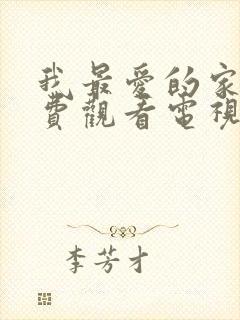 我最愛的家
費觀看電視
李芳才